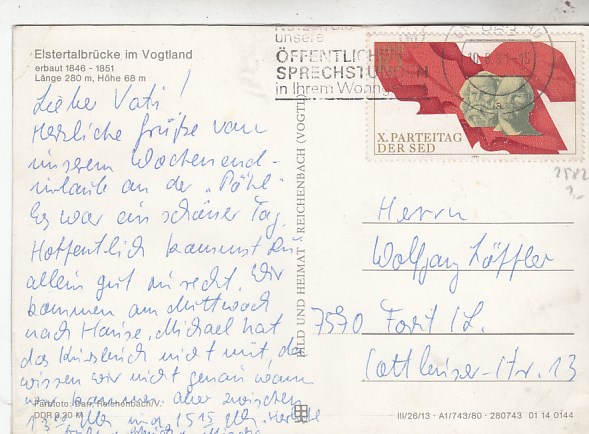 Elstertalbrücke im Vogtland
erbaut 1846 - 1851
Länge 280 m, Höhe 68 m
Lieber Vati!
Herzliche Grüße von
unserem Wochenend-
urlaub an der "Pöhl".
Es war ein schöner Tag.
Hoffentlich kommst Du
allein gut zurecht. Wir
kommen am Mittwoch
nach Hause. Michael hat
das Kursbuch nicht mit, da
wissen wir nicht genau wann
wir kommen aber zwischen
Uhr und 1515 Uhr. Herzliche
Farbfoto: Darr, Reichenbach/V.
DDR 0,20 M
BILD UND HEIMAT REICHENBACH (VOGTL)
unsere
ÖFFENTLICHEN
SPRECHSTUNDEN
in Ihrem Wohng
X. PARTEITAG
DER SED
2582
Herrn
Wolfgang Löffler
7570 Forst /L.
Cottbuser-Str. 13
III/26/13 · A1/743/80 · 280743 01 14 0144